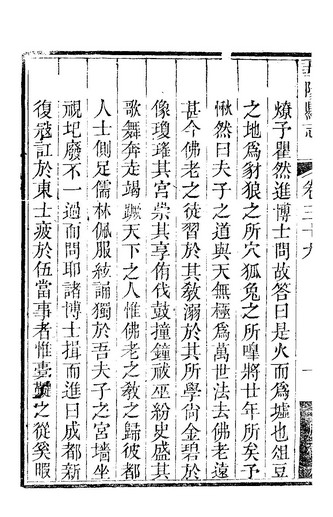 燎予瞿然進博士問故答曰是火而為墟也俎豆
之地為豺狼之所穴狐兔之所嘷將廿年所矣予
愀然曰夫子之道與天無極為萬世法去佛老遠
甚今佛老之徒習於其教溺於其所學尙金碧於
像瓊瑤其宮崇其享侑伐鼓撞鐘祓巫紛史盛其
歌舞奔走竭蹶天下之人惟佛老之教之歸彼都
人士側足儒林佩服絃誦獨於吾夫子之宮墻坐
視圮廢不一過而問耶諸博士揖而進曰成都新
復寇訌於東士疲於伍當事者惟臺 之從奚暇
縣志
卷三十九
一